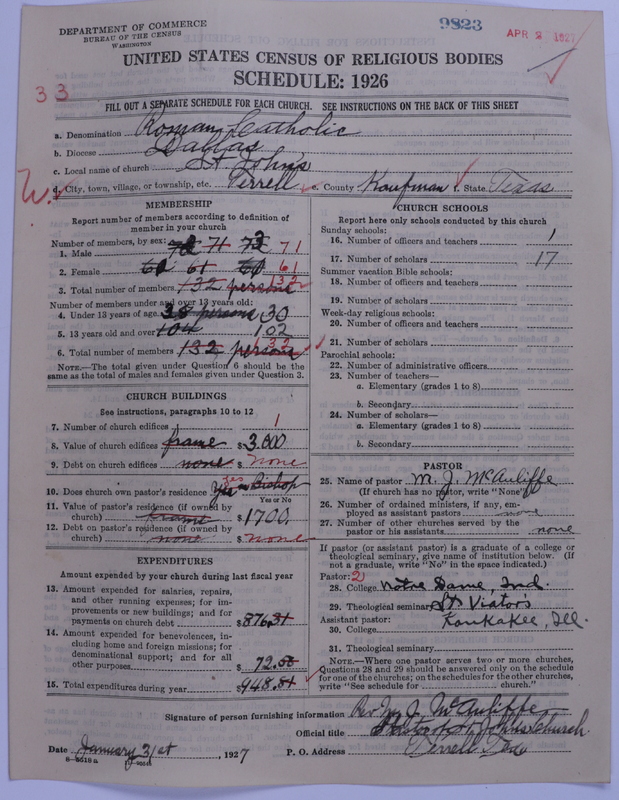 DEPARTMENT OF COMMERCE
BUREAU OF THE CENSUS
WASHINGTON
9823
APR 2 1927
UNITED STATES CENSUS OF RELIGIOUS BODIES
SCHEDULE: 1926
33
FILL OUT A SEPARATE SCHEDULE FOR EACH CHURCH. SEE INSTRUCTIONS ON THE BACK OF THIS SHEET
a. Denomination Roman Catholic
b. Diocese Dallas
c. Local name of church St Johns
W. d. City, town, village, or township, etc. Terrell e. County Kaufman f. State Texas
MEMBERSHIP
Report number of members according to definition of
member in your church
Number of members, by sex:
1. Male 72 71 72 71
2. Female 61 61 61
3. Total number of members 132 persons 132
Number of members under and over 13 years old:
4. Under 13 years of age 38 persons 30
5. 13 years old and over 104 102
6. Total number of members 132 persons 132
NOTE.—The total given under Question 6 should be the
same as the total of males and females given under Question 3.
CHURCH BUILDINGS
See instructions, paragraphs 10 to 12
7. Number of church edifices 1
8. Value of church edifices frame $3.000
9. Debt on church edifices none $ none
10. Does church own pastor's residence Yes Bishop yes
Yes or No
11. Value of pastor's residence (if owned by
church) frame $1700.
12. Debt on pastor's residence (if owned by
church) none $ none
EXPENDITURES
Amount expended by your church during last fiscal year
13. Amount expended for salaries, repairs,
and other running expenses; for im-
provements or new buildings; and for
payments on church debt $876.31
14. Amount expended for benevolences, in-
cluding home and foreign missions; for
denominational support; and for all
other purposes 72.50
15. Total expenditures during year $948.81
CHURCH SCHOOLS
Report here only schools conducted by this church
Sunday schools:
16. Number of officers and teachers 1
17. Number of scholars 17
Summer vacation Bible schools:
18. Number of officers and teachers
19. Number of scholars
Week-day religious schools:
20. Number of officers and teachers
21. Number of scholars
Parochial schools:
22. Number of administrative officers
23. Number of teachers—
a. Elementary (grades 1 to 8)
b. Secondary
24. Number of scholars—
a. Elementary (grades 1 to 8)
b. Secondary
PASTOR
25. Name of pastor M. J. McAuliffe
(If church has no pastor, write "None")
26. Number of ordained ministers, if any, em-
ployed as assistant pastors none
27. Number of other churches served by the
pastor or his assistants none
If pastor (or assistant pastor) is a graduate of a college or
theological seminary, give name of institution below. (If
not a graduate, write "No" in the space indicated.)
Pastor: 2
28. College Notre Dame, Ind.
29. Theological seminary St Viators
Assistant pastor: Kankakee, Ill.
30. College
31. Theological seminary
NOTE.—Where one pastor serves two or more churches,
Questions 28 and 29 should be answered only on the schedule
for one of the churches; on the schedules for the other churches,
write "See schedule for church."
Signature of person furnishing information Rev M. J. McAuliffe
Official title Pastor St Johns Church.
Date January 31st, 1927 P. O. Address Terrell Texas